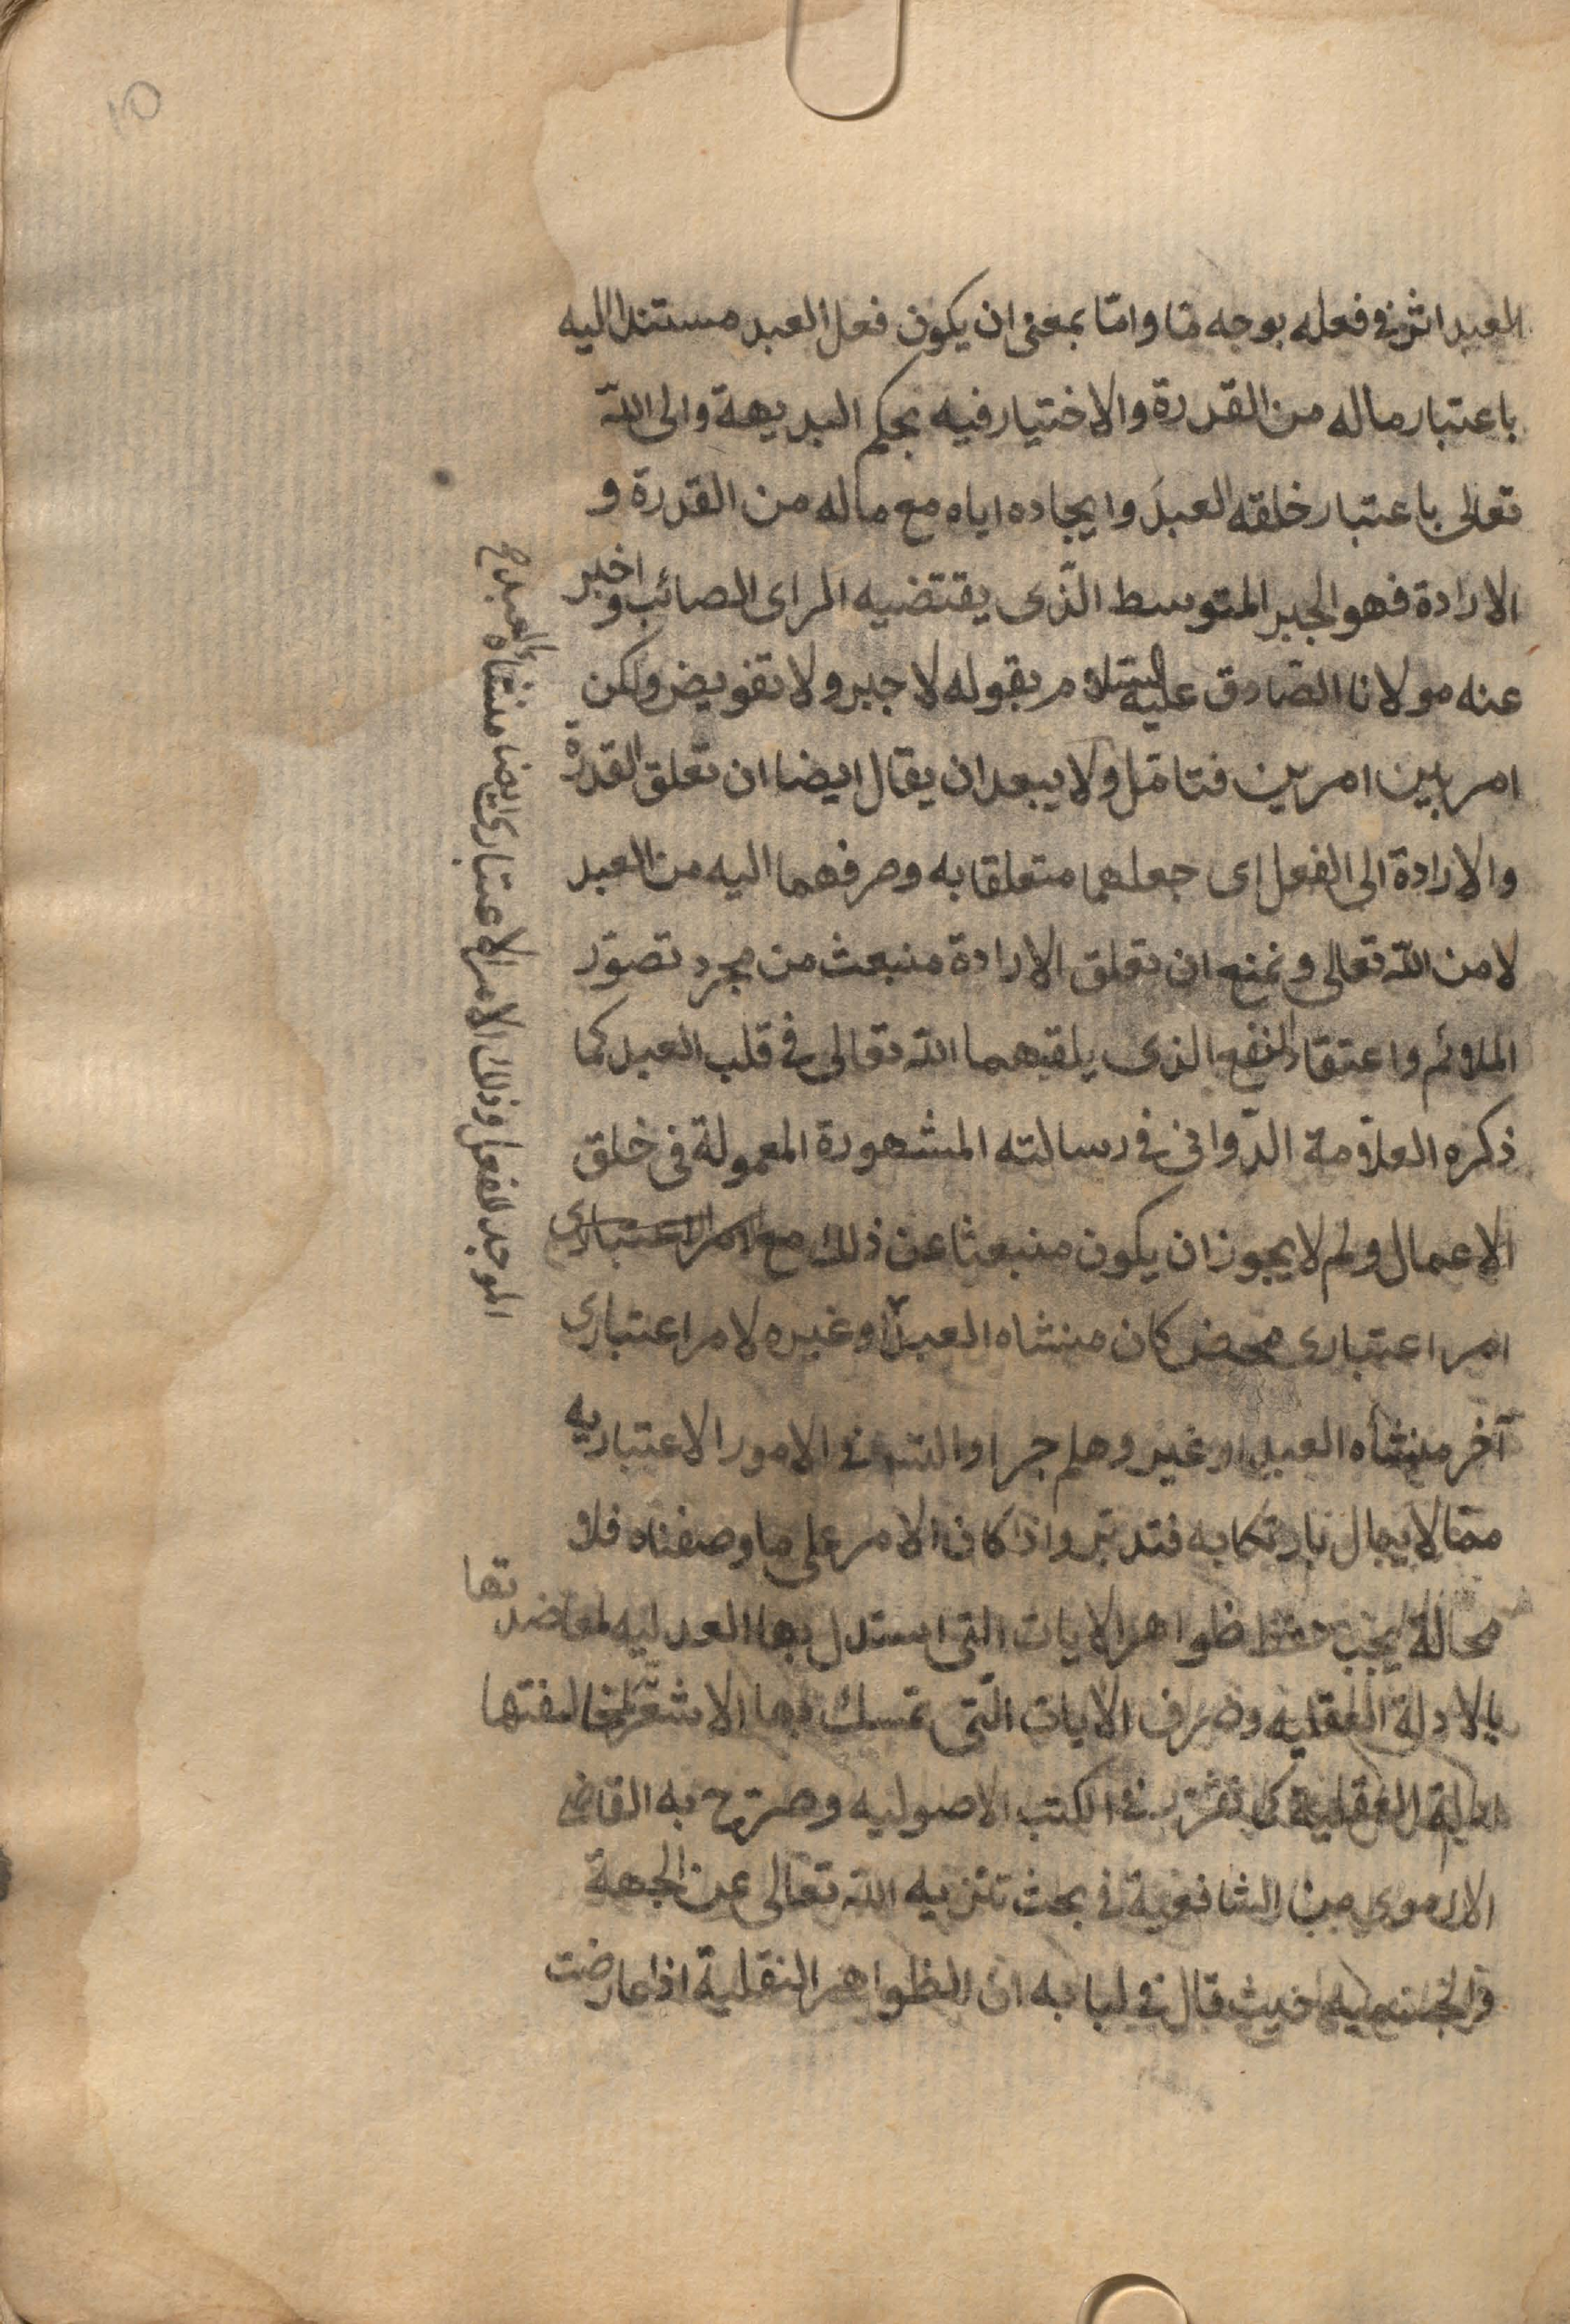 للعبد اثر في فعله بوجه ما واما بمعنى ان يكون فعل العبد مستندا اليه
باعتبار ماله من القدرة والاختيار فيه بحكم البديهة والى الله
تعالى باعتبار خلقه العبد وايجاده اياه مع ماله من القدرة و
الارادة فهو الجبر المتوسط الذى يقتضيه الراى الصائب واخبر
عنه مولانا الصادق عليه السلام بقوله لا جبر ولا تفويض ولكن
امر بين امرين فتامل ولا يبعد ان يقال ايضا ان تعلق القدرة
والارادة الى الفعل اى جعلهما متعلقا به وصرفهما اليه من العبد
لا من الله تعالى ونمنع ان تعلق الارادة منبعث من مجرد تصور
الملائم واعتقاد النفع الذى يلقيهما الله تعالى في قلب العبد كما
ذكره العلامة الدوانى في رسالته المشهورة المعمولة فى خلق
الاعمال ولم لا يجوز ان يكون منبعثا عن ذلك مع الامر الاعتبارى
امر اعتبارى محض كان منشاه العبد او غيره لامر اعتبارى
آخر منشأه العبد او غيره وهلم جرا والتسه في الامور الاعتباريه
مما لا يبال بارتكابه فتدبر واذا كان الامر على ما وصفناه فلا
محالة يجب حفظ ظواهر الايات التى استدل بها العدليه لمعاضدتها
بالادلة العقليه وصرف الايات التى تمسك بها الاشعرية لمخالفتها
العقلية كما تقرر في الكتب الاصوليه وصرح به القاضى
الارموى من الشافعية في بحث تنزيه الله تعالى عن الجهة
والجسميه حيث قال في لبابه ان الظواهر النقلية اذا عارضت
العبد
الموجد للفعل وذلك الامر الاعتبارى ايضا منشاه